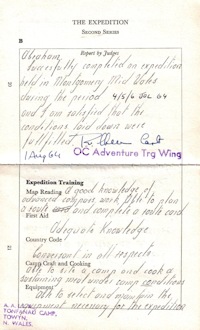 THE EXPEDITION
SECOND SERIES
B
Report by Judges
Abraham
successfully completed an expedition
held in Montgomery Mid Wales
during the period 4/5/6 JUL 64
and I am satisfied that the
conditions laid down were
fulfilled
1 Aug 64
OC Adventure Trg Wing
Expedition Training
Map Reading A good knowledge of
advanced compass work. Able to plan
a route and complete a route card
First Aid
Adequate Knowledge
Country Code
Conversant in all respects
Camp Craft and Cooking
Able to site a camp and cook a
sustaining meal under camp conditions
Equipment
Able to select and maintain the
equipment necessary for the expedition
TONFANAU CAMP,
TOWYN,
N. WALES.